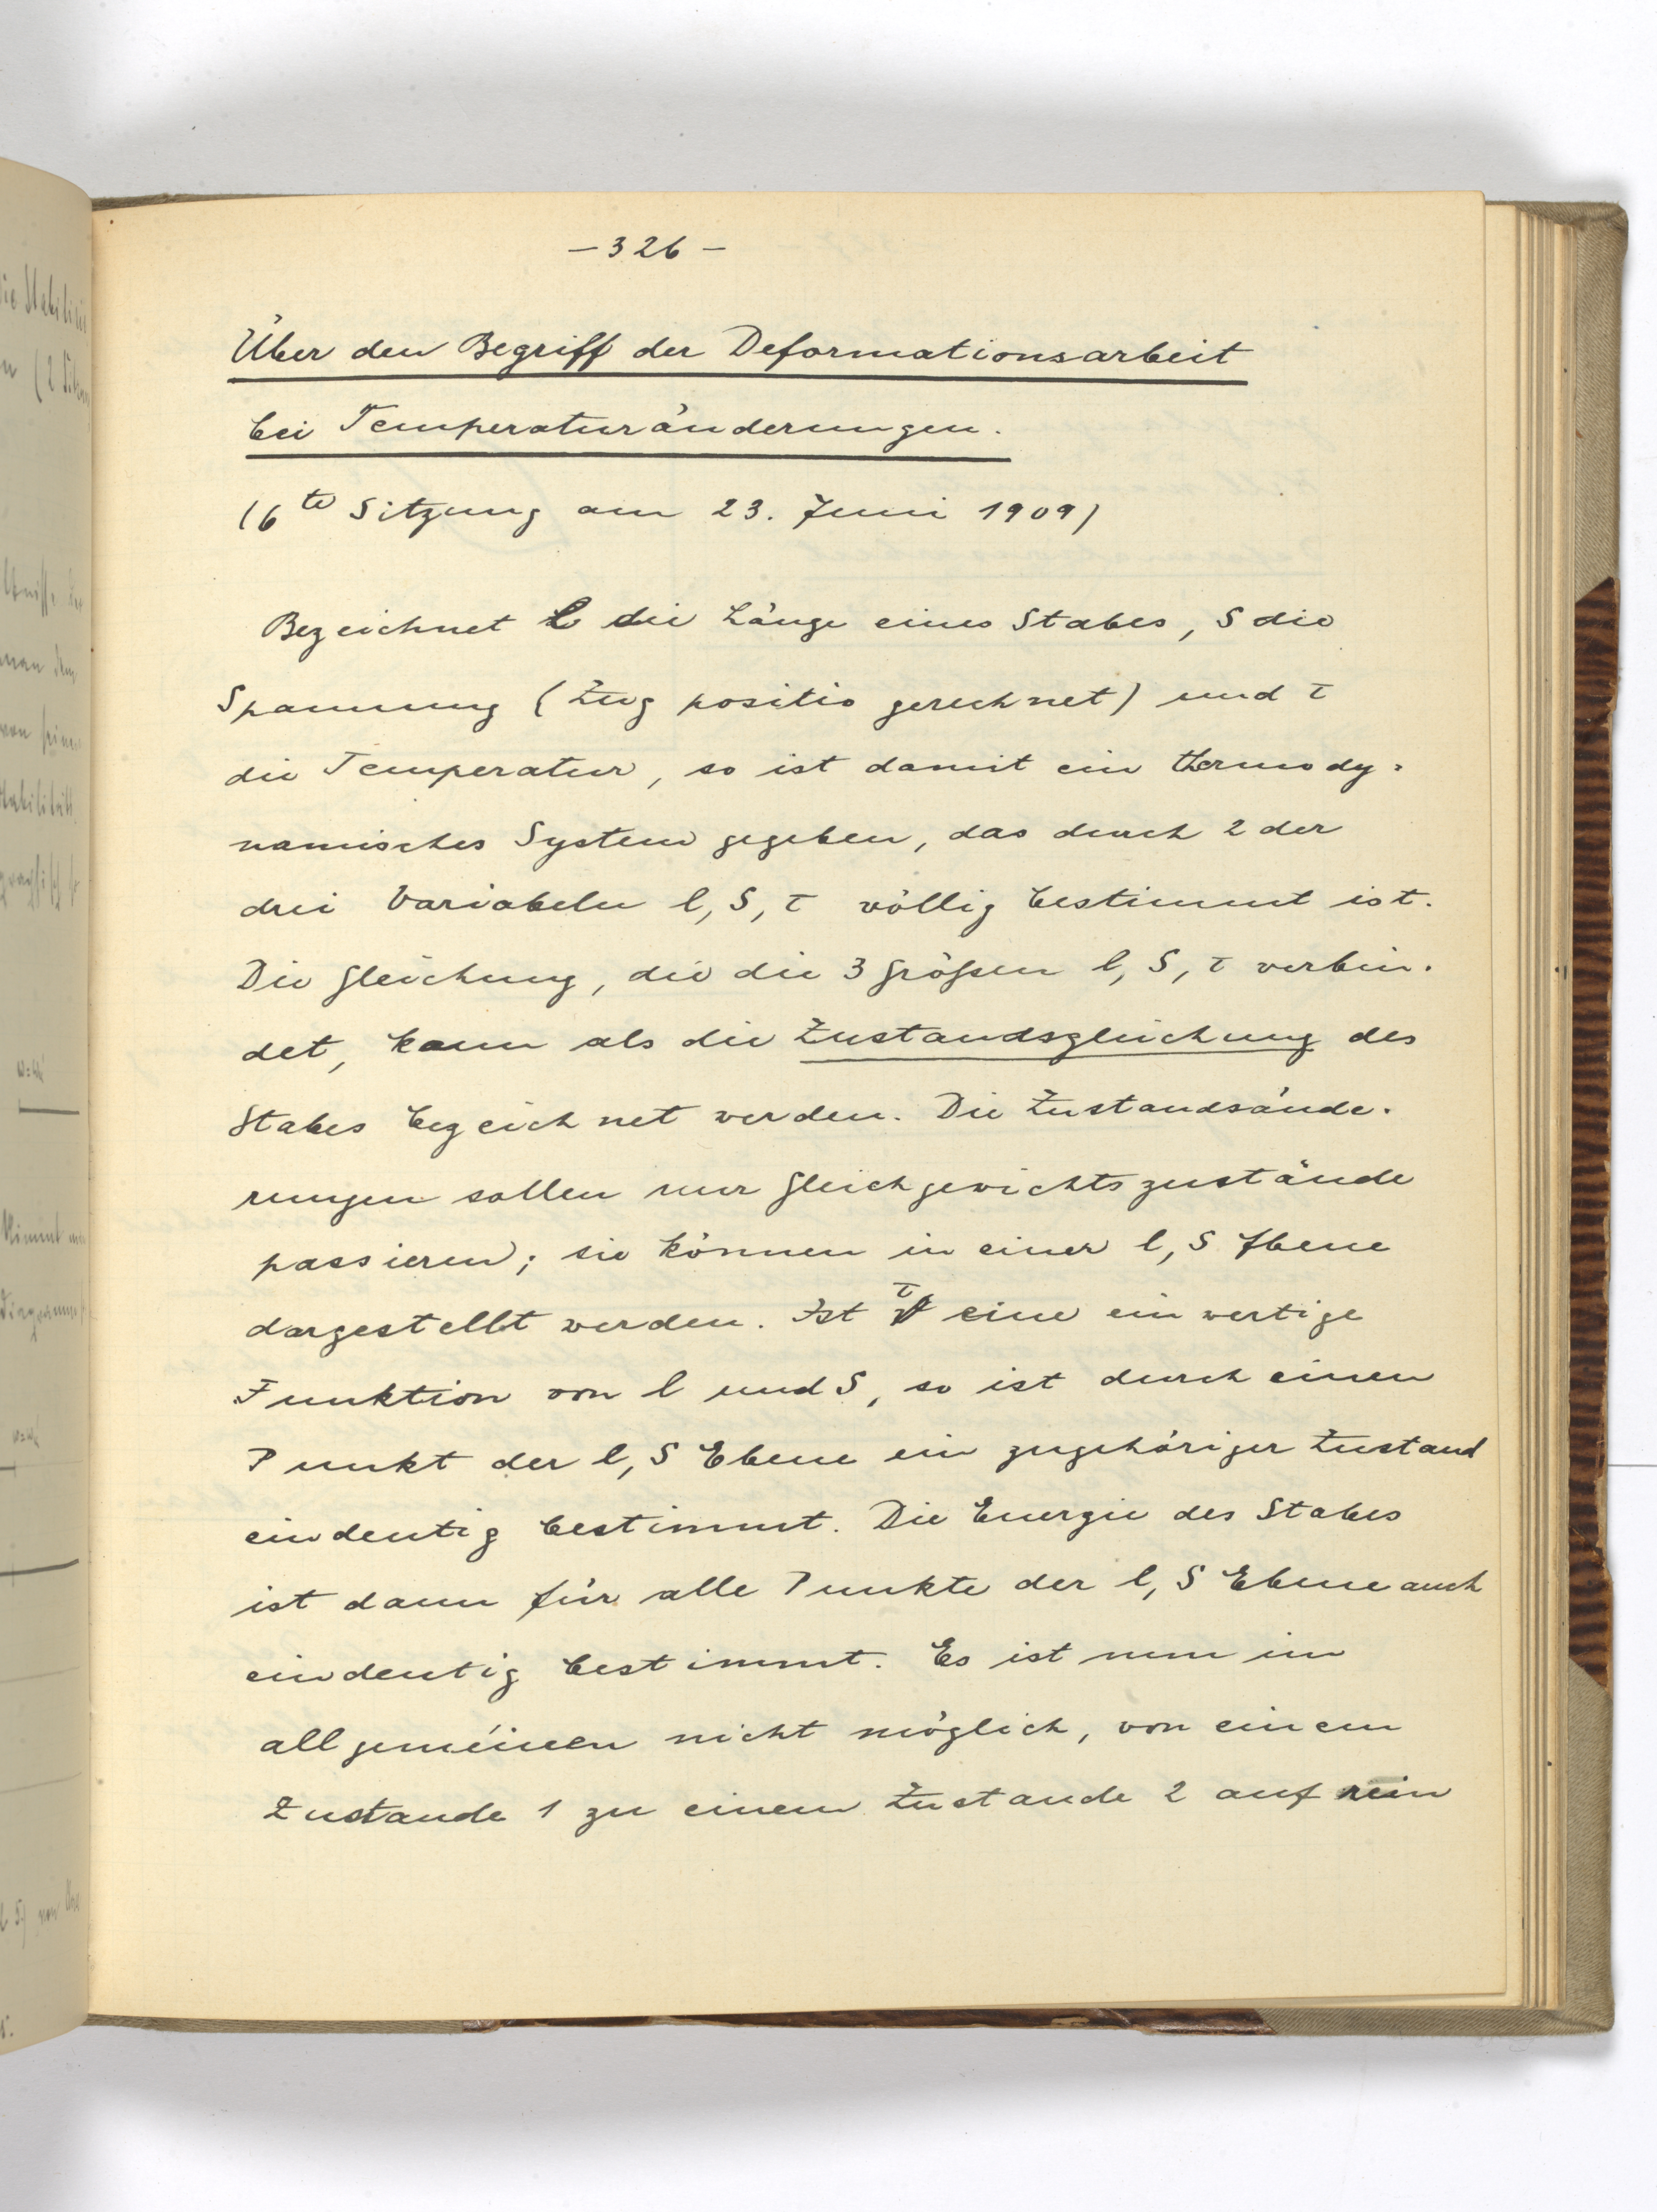 – 326 –
Über den Begriff der Deformationsarbeit
bei Temperaturänderungen.
(6te Sitzung am 23. Juni 1909)
Bezeichnet l die Länge eines Stabes, S die
Spannung (Zug positiv gerechnet) und τ
die Temperatur, so ist damit ein thermody-
namisches System gegeben, das durch 2 der
drei Variabeln l, S, τ völlig bestimmt ist.
Die Gleichung, die die 3 Größen l, S, τ verbin-
det, kann als die Zustandsgleichung des
Stabes bezeichnet werden. Die Zustandsände-
rungen sollen nur Gleichgewichtszustände
passieren; sie können in einer l, S Ebene
dargestellt werden. Ist τ eine einwertige
Funktion von l und S, so ist durch einen
Punkt der l, S Ebene ein zugehöriger Zustand
eindeutig bestimmt. Die Energie des Stabes
ist dann für alle Punkte der l, S Ebene auch
eindeutig bestimmt. Es ist nun im
allgemeinen nicht möglich, von einem
Zustande 1 zu einem Zustande 2 auf rein